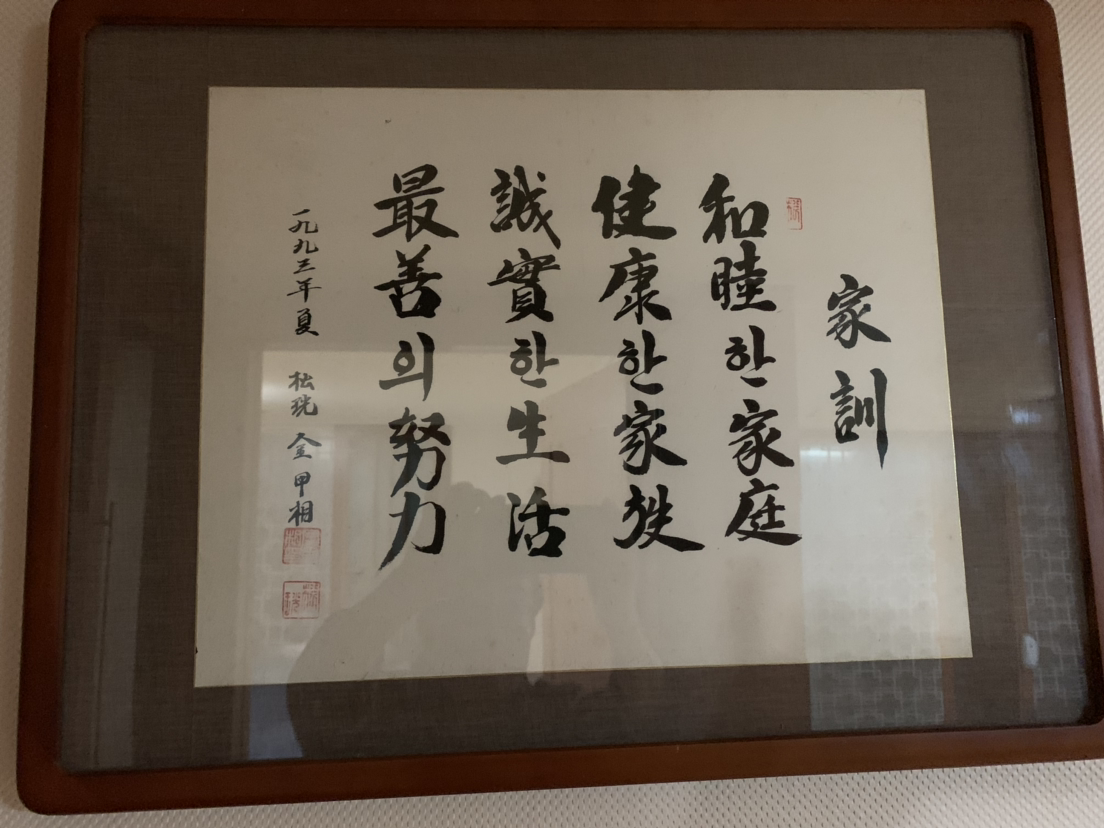 家訓
和睦한家庭
健康한家族
誠實한生活
最善의努力
一九九三年夏 松珖 金甲相